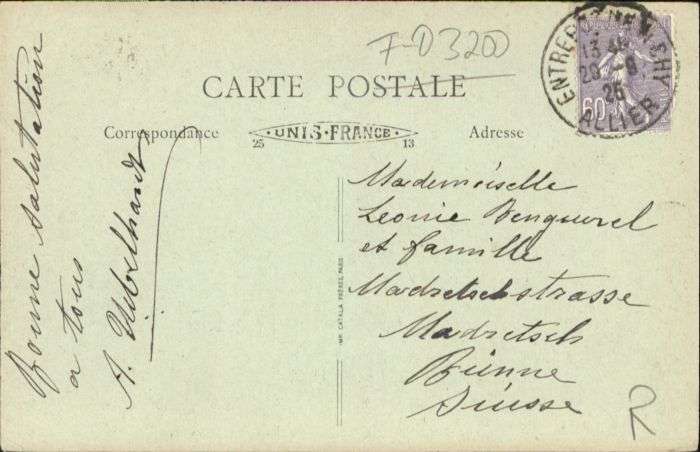 F-D 3200
CARTE POSTALE
Correspondance
UNIS-FRANCE
25
13
Adresse
ENTREPÔT VICHY
13
29 -8
25
ALLIER
60
Bonne salutation
a tous
A.
Mademoiselle
Leonie Benguerel
et famille
Madretschstrasse
Madretsch
Bienne
Suisse
IMP. CATALA FRÈRES, PARIS
R